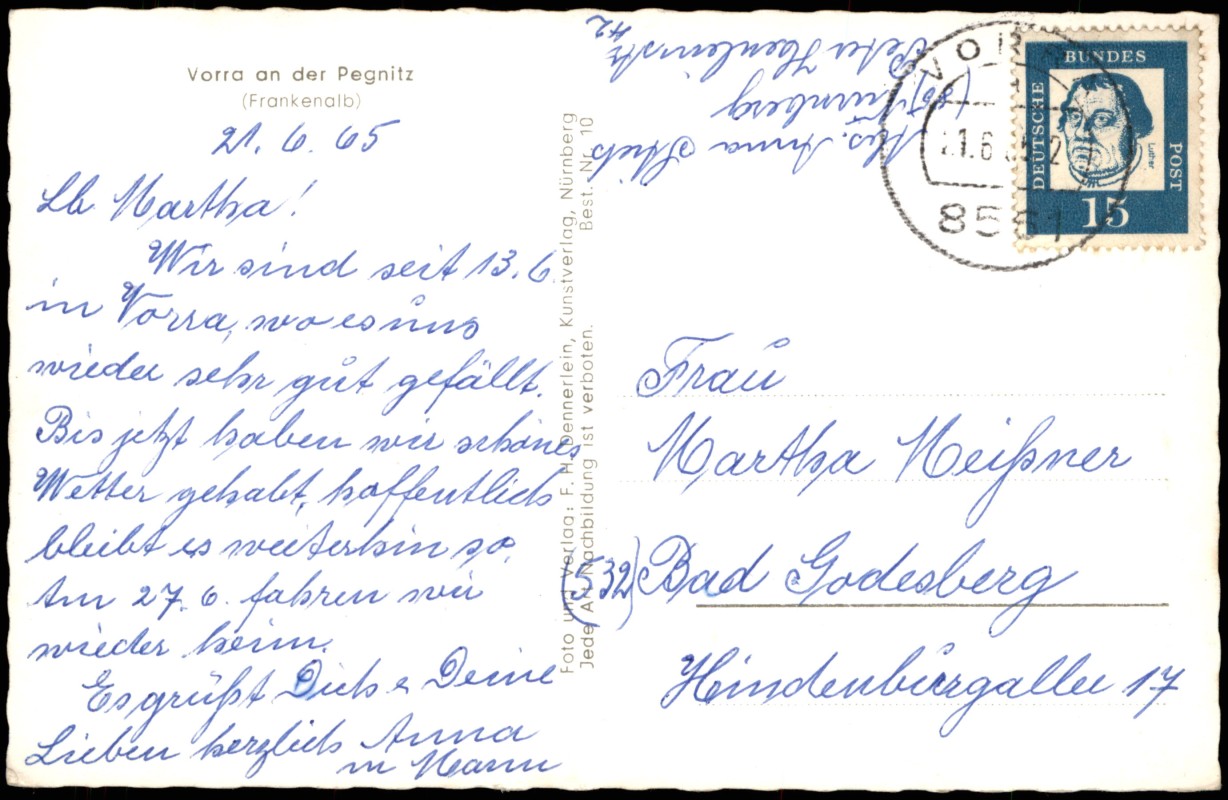 Vorra an der Pegnitz
(Frankenalb)
21. 6. 65
Lb. Martha!
Wir sind seit 13. 6.
in Vorra, wo es uns
wieder sehr gut gefällt.
Bis jetzt haben wir schönes
Wetter gehabt, hoffentlich
bleibt es weiterhin so.
Am 27. 6. fahren wir
wieder heim.
Es grüßt Dich & Deine
Lieben herzlich Anna
u Mann
Foto und Verlag: F. H. Dennerlein, Kunstverlag, Nürnberg
Jede Art Nachbildung ist verboten. Best. Nr. 10
Abs. Anna
(85) Nürnberg
Peter Henleinstr.
42
VORRA
21.6.
8561
DEUTSCHE
BUNDES
POST
Luther
15
Frau
Martha Meißner
(532) Bad Godesberg
Hindenburgallee 17